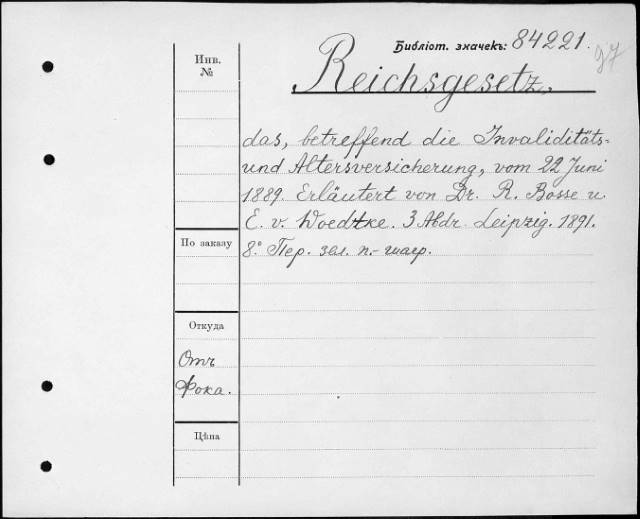 Библіот. значекъ: 84221.
Инв.
№
Reichsgesetz,
das, betreffend die Invaliditäts-
und Altersversicherung, vom 22 Juni
1889. Erläutert von Dr. R. Bosse u.
E. v. Woedtke. 3 Abdr. Leipzig. 1891.
8° Пер. зел. п.-шагр.
По заказу
Откуда
Отъ
Фока.
Цѣна